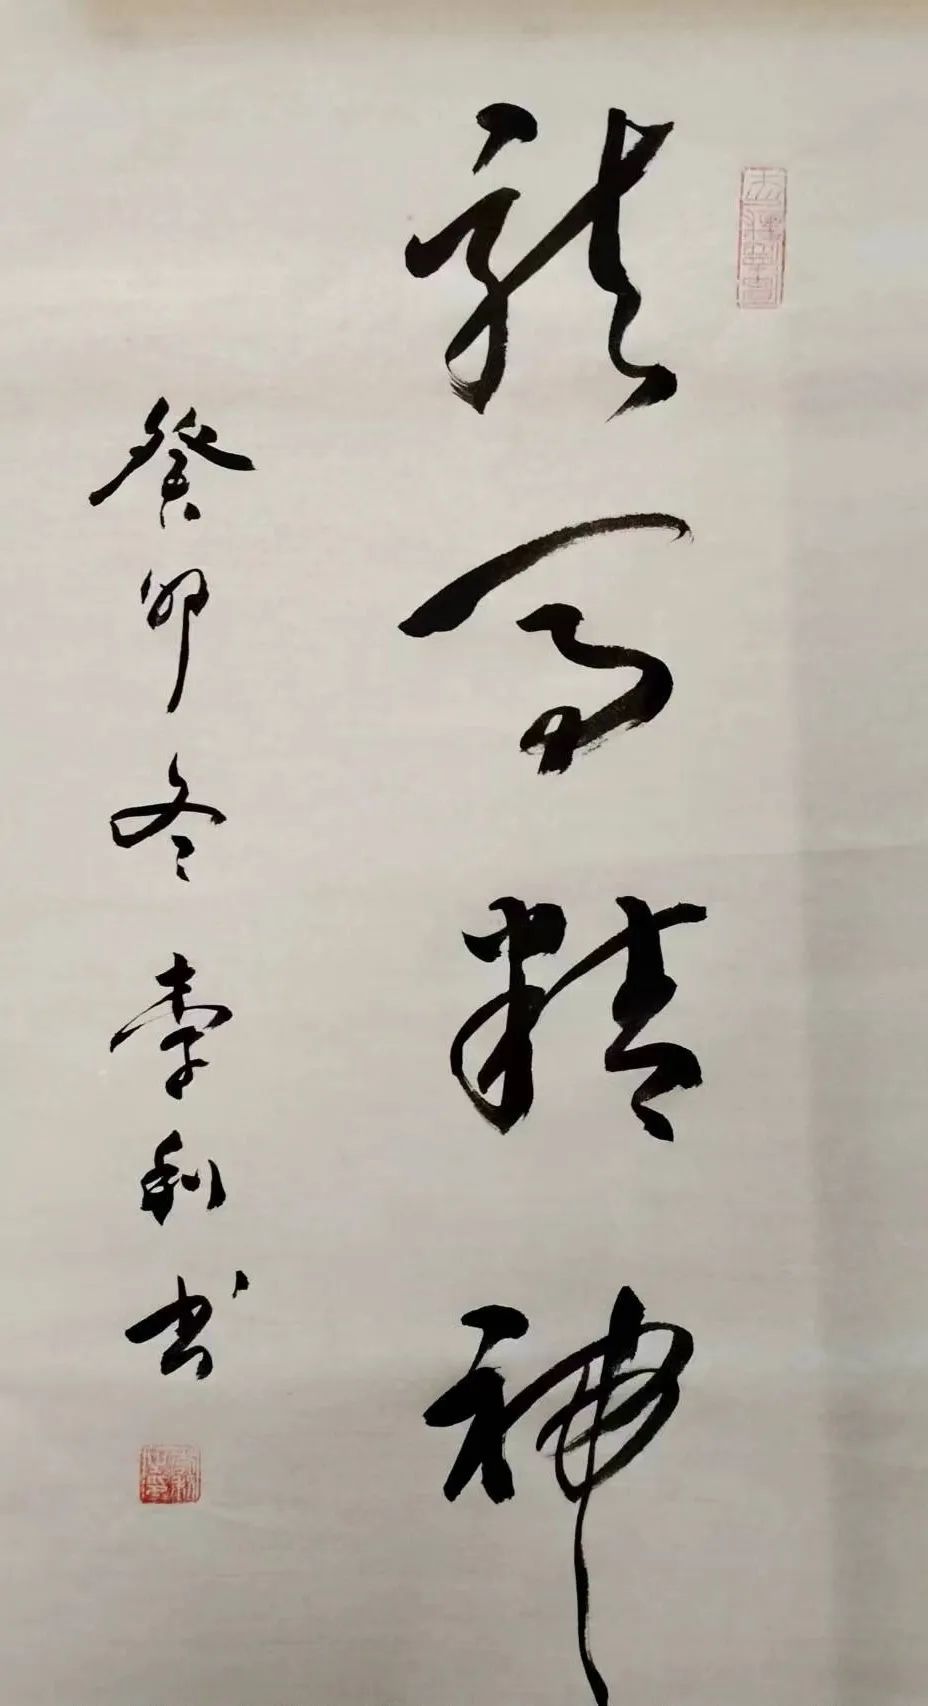 龙马精神
癸卯冬李利书